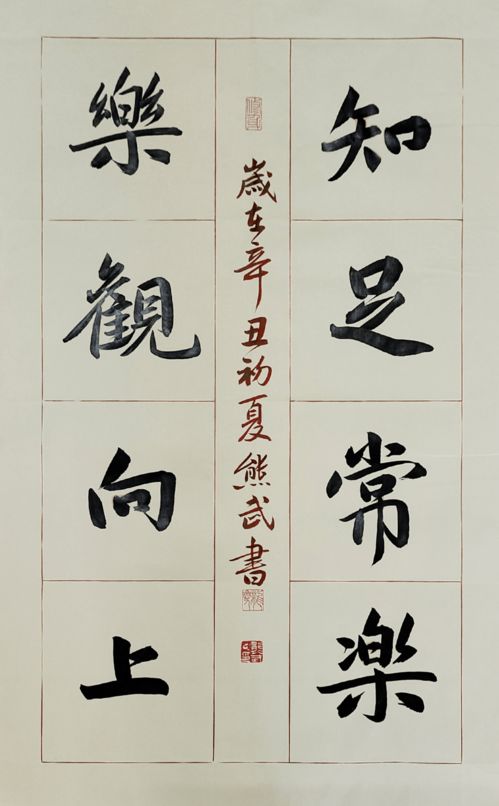 知足常楽
歲在辛丑初夏熊武書
樂觀向上